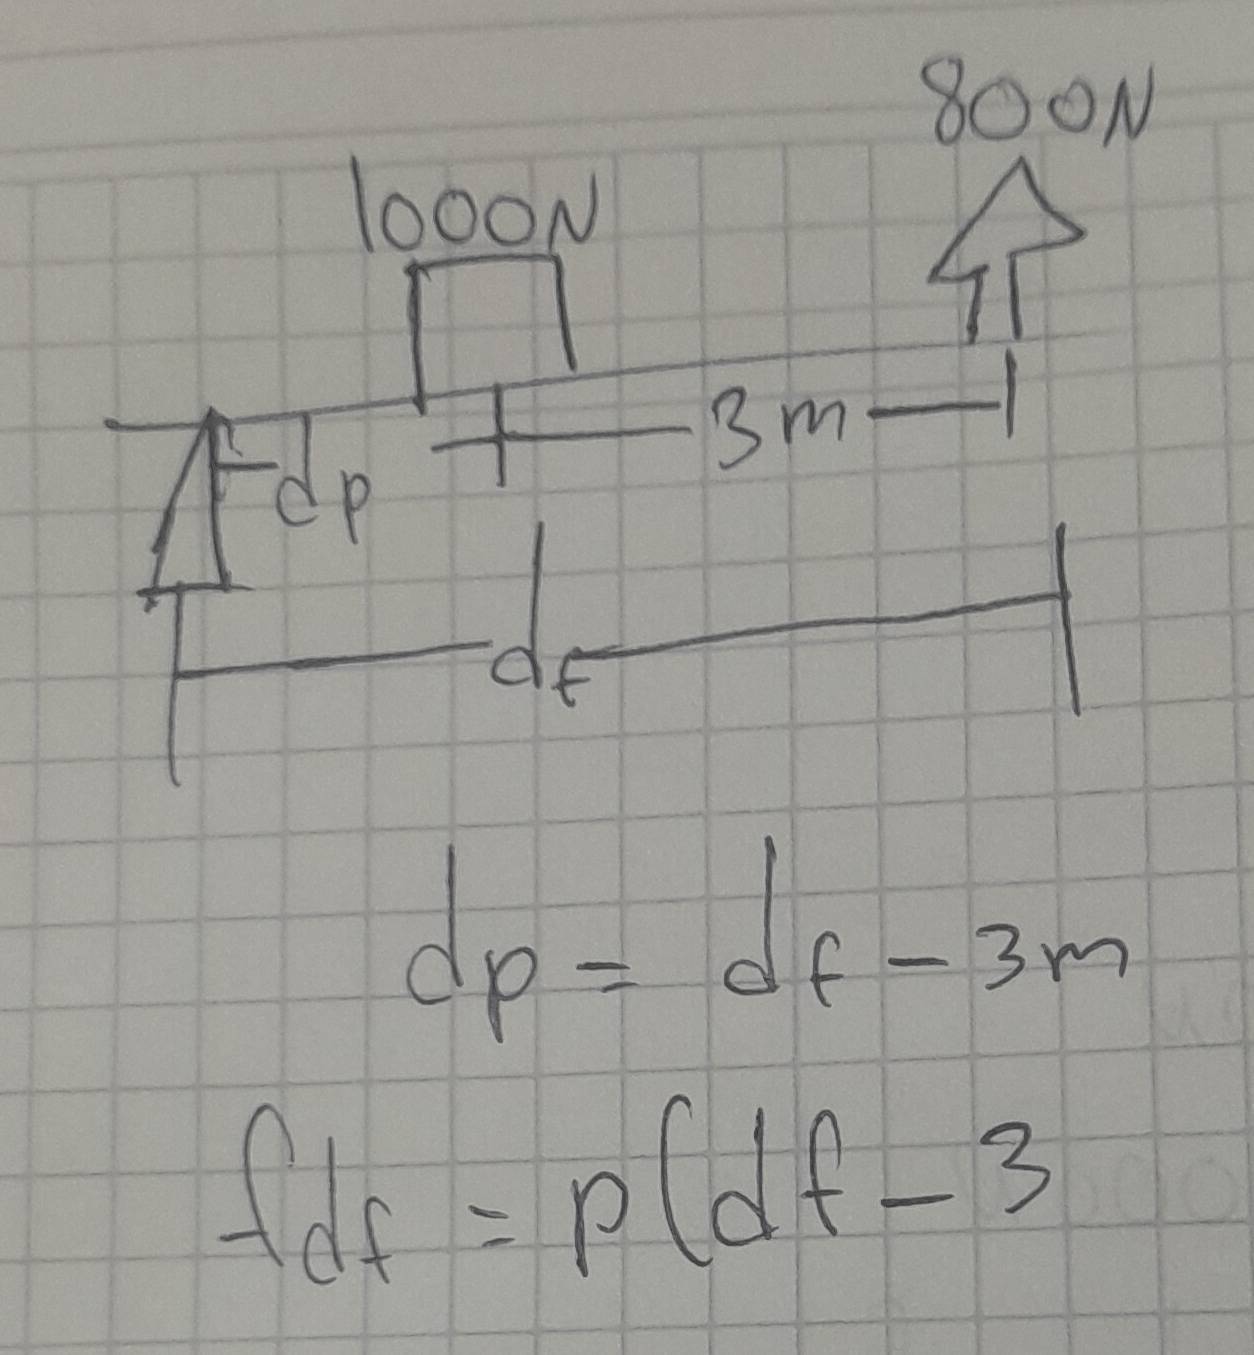 800N
1000N
3m
dp
df
dp = df - 3m
fdf = p(df - 3